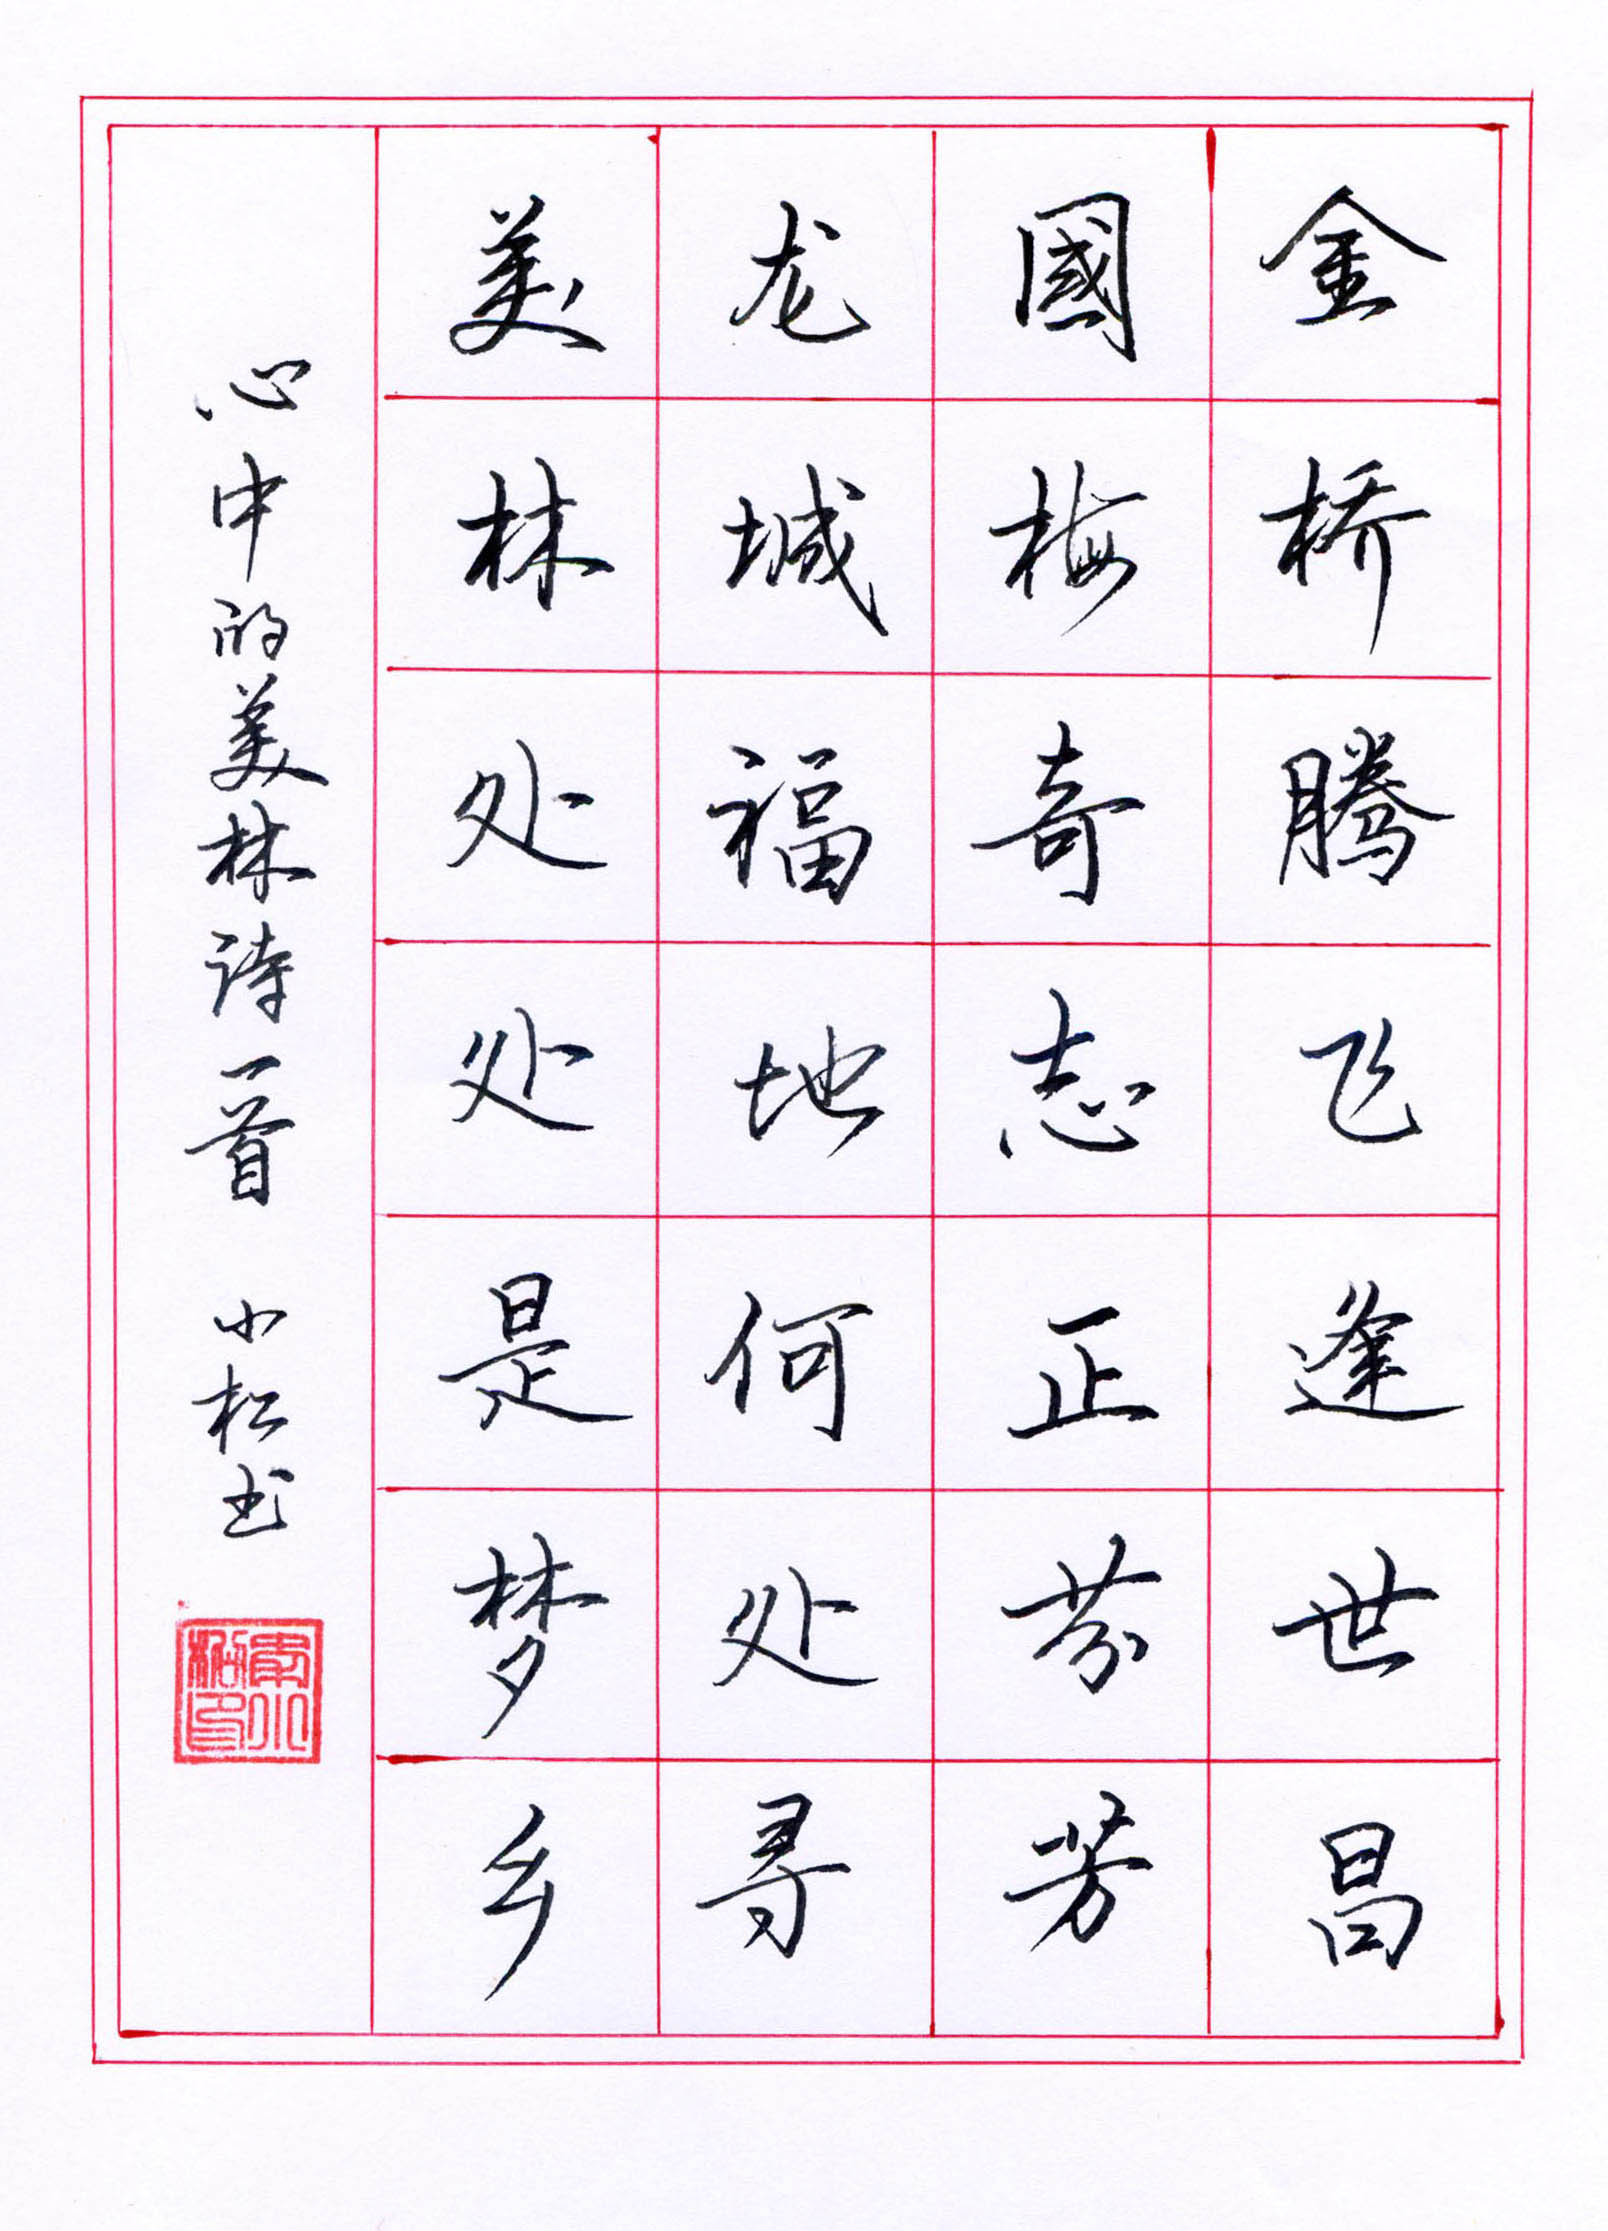 金桥腾飞逢世昌
國梅奇志正芬芳
龙城福地何处寻
美林处处是梦乡
心中的美林诗一首 小松书